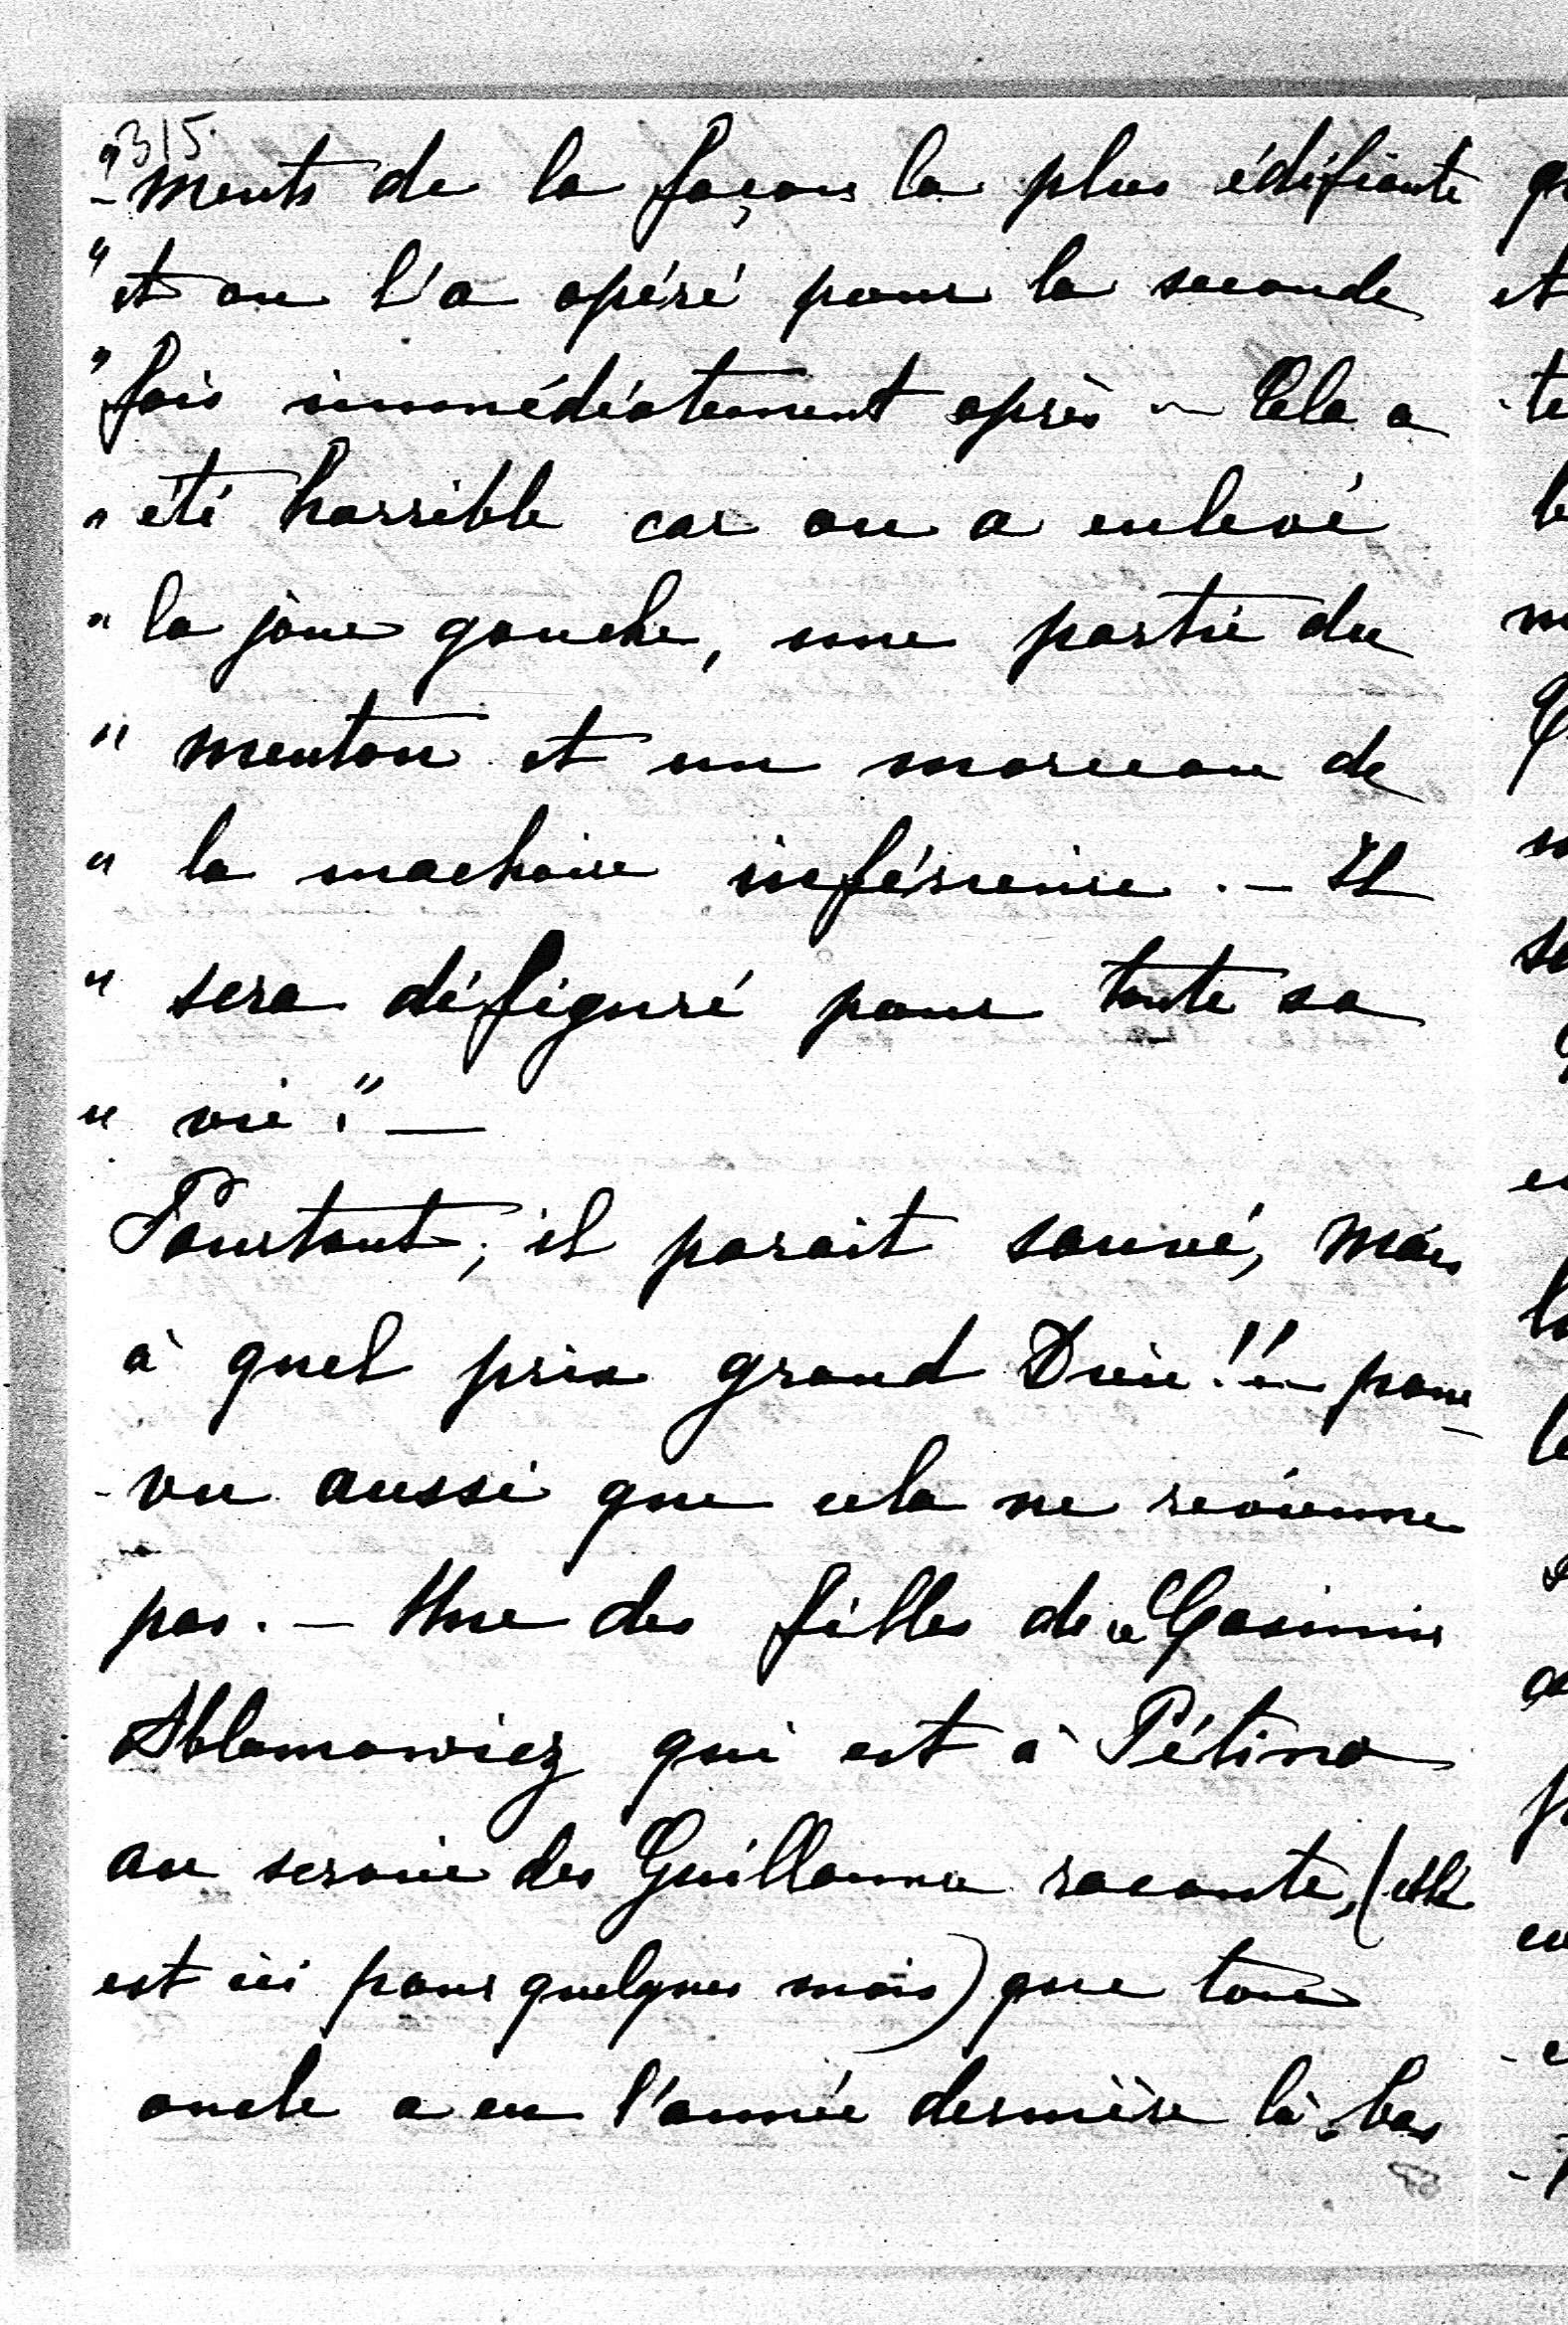 315
"-ments de la façon la plus édifiante
"et on l'a opéré pour la seconde
"fois immédiatement après - Cela a
" été horrible car on a enlevé
" la joue gauche, une partie du
" menton et un morceau de
" la machoire inférieure. - Il
" sera défiguré pour toute sa
" vie." —
Pourtant, il parait sauvé, mais
à quel prix grand Dieu!! - pour-
-vu aussi que cela ne revienne
pas. - Une des filles de ce Casimir
Ablamowicz qui est à Pétino
au service des Guillaume raconte, (elle
est ici pour quelques mois) que ton
oncle a eu l'année dernière là-bas